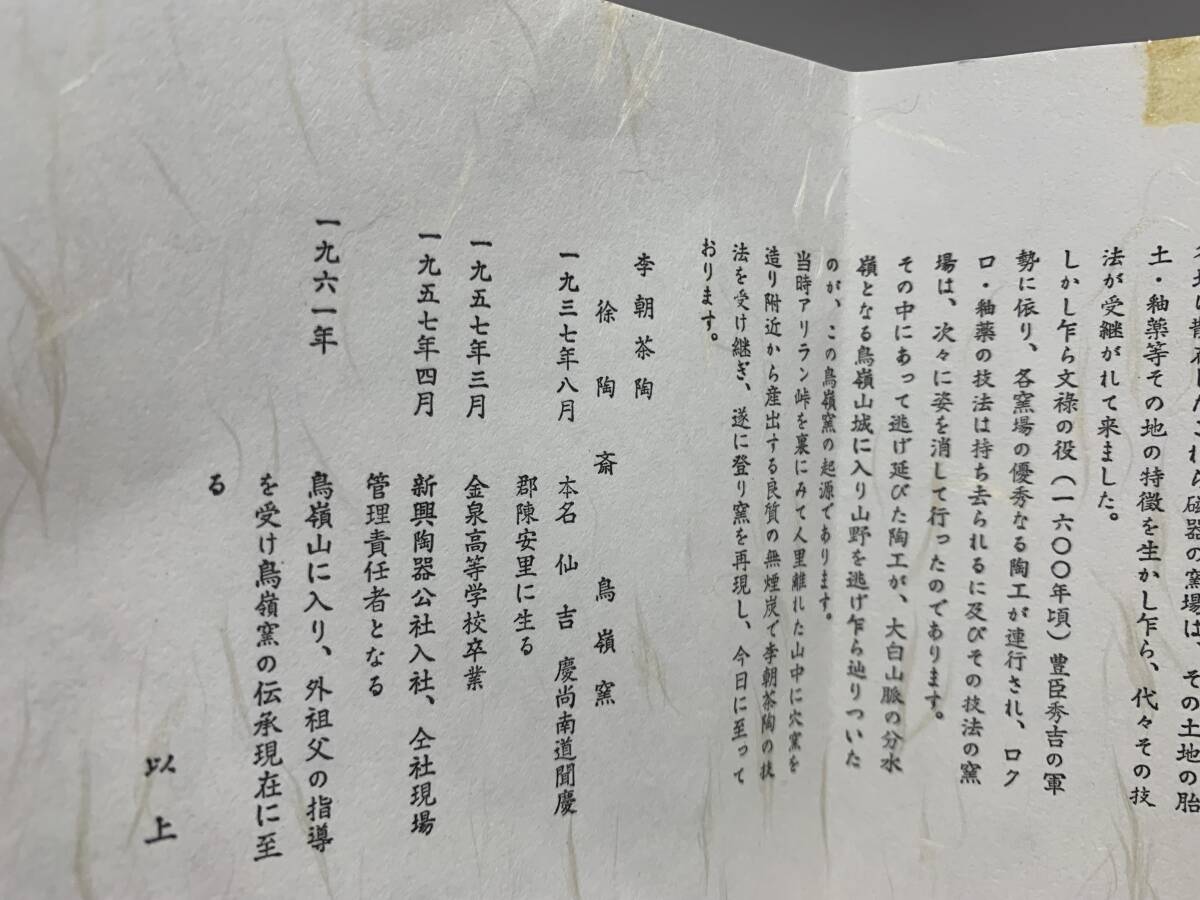 散在したこれら磁器の窯場は、その土地の胎
土・釉薬等その地の特徴を生かし乍ら、代々その技
法が受継がれて来ました。
しかし乍ら文祿の役(一六〇〇年頃)豊臣秀吉の軍
勢に依り、各窯場の優秀なる陶工が連行され、ロク
ロ・釉薬の技法は持ち去られるに及びその技法の窯
場は、次々に姿を消して行ったのであります。
その中にあって逃げ延びた陶工が、大白山脈の分水
嶺となる鳥嶺山城に入り山野を逃げ乍ら辿りついた
のが、この鳥嶺窯の起源であります。
当時アリラン峠を裏にみて人里離れた山中に穴窯を
造り附近から産出する良質の無煙炭で李朝茶陶の技
法を受け継ぎ、遂に登り窯を再現し、今日に至って
おります。
李朝茶陶
徐陶斎 鳥嶺窯
一九三七年八月 本名 仙吉 慶尚南道聞慶
郡陳安里に生る
一九五七年三月 金泉高等学校卒業
一九五七年四月 新興陶器公社入社、仝社現場
管理責任者となる
一九六一年 鳥嶺山に入り、外祖父の指導
を受け鳥嶺窯の伝承現在に至
る
以上